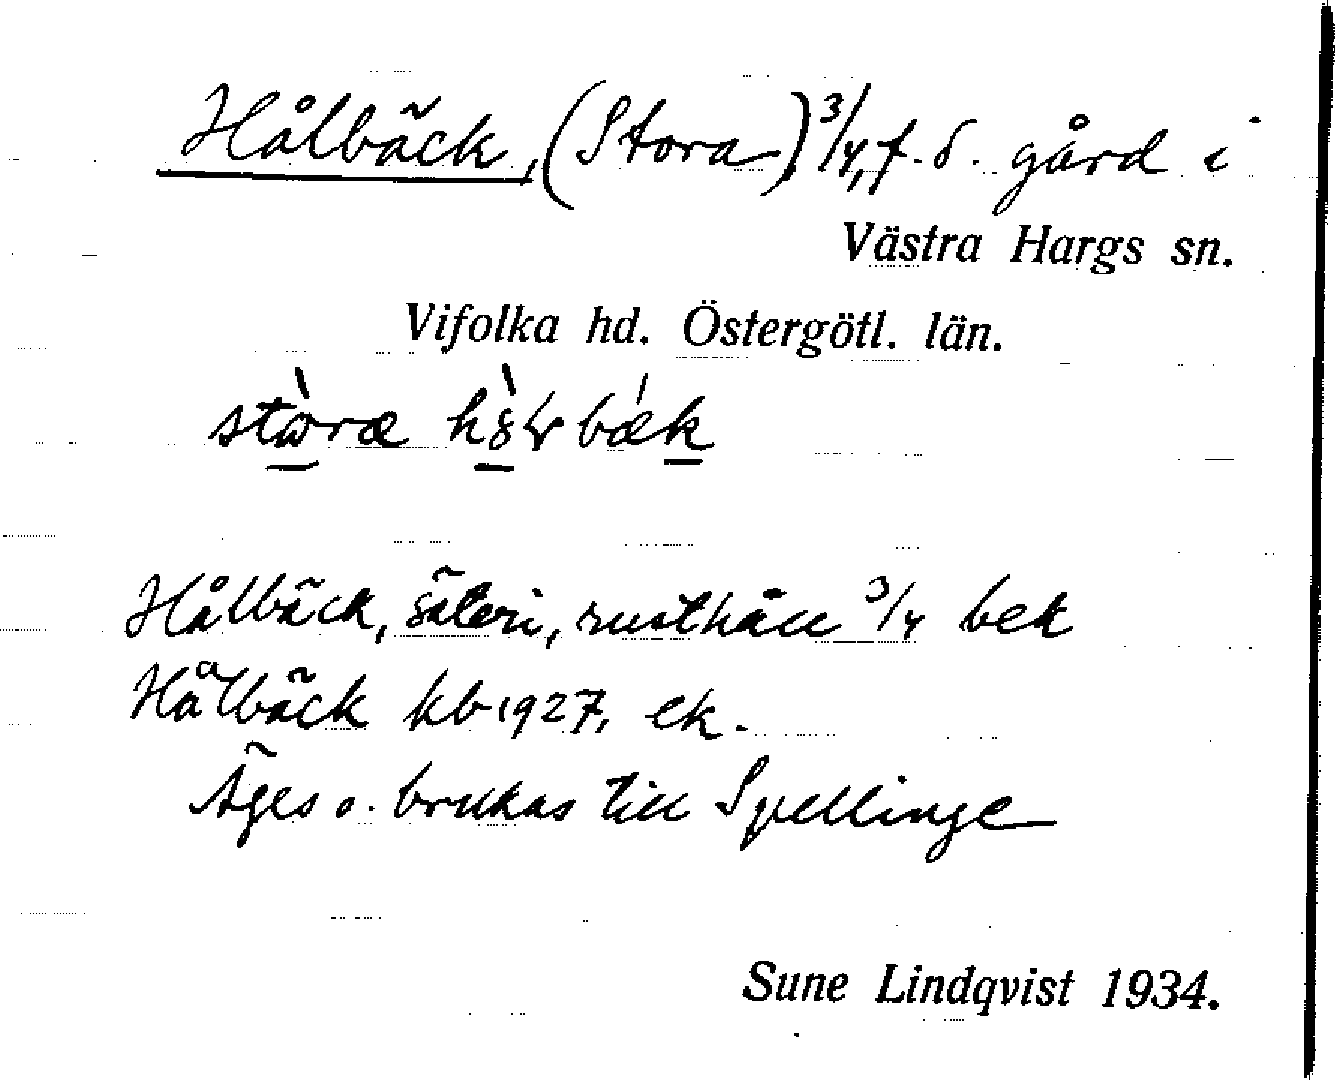 Hålbäck, (Stora) 3/4, f. d. gård i
Västra Hargs sn.
Vifolka hd. Östergötl. län.
Hålbäck, säteri, rusthåll 3/4 bek
Hålbäck kb 1927, ek.
Äges o. brukas till Spellinge
Sune Lindqvist 1934.